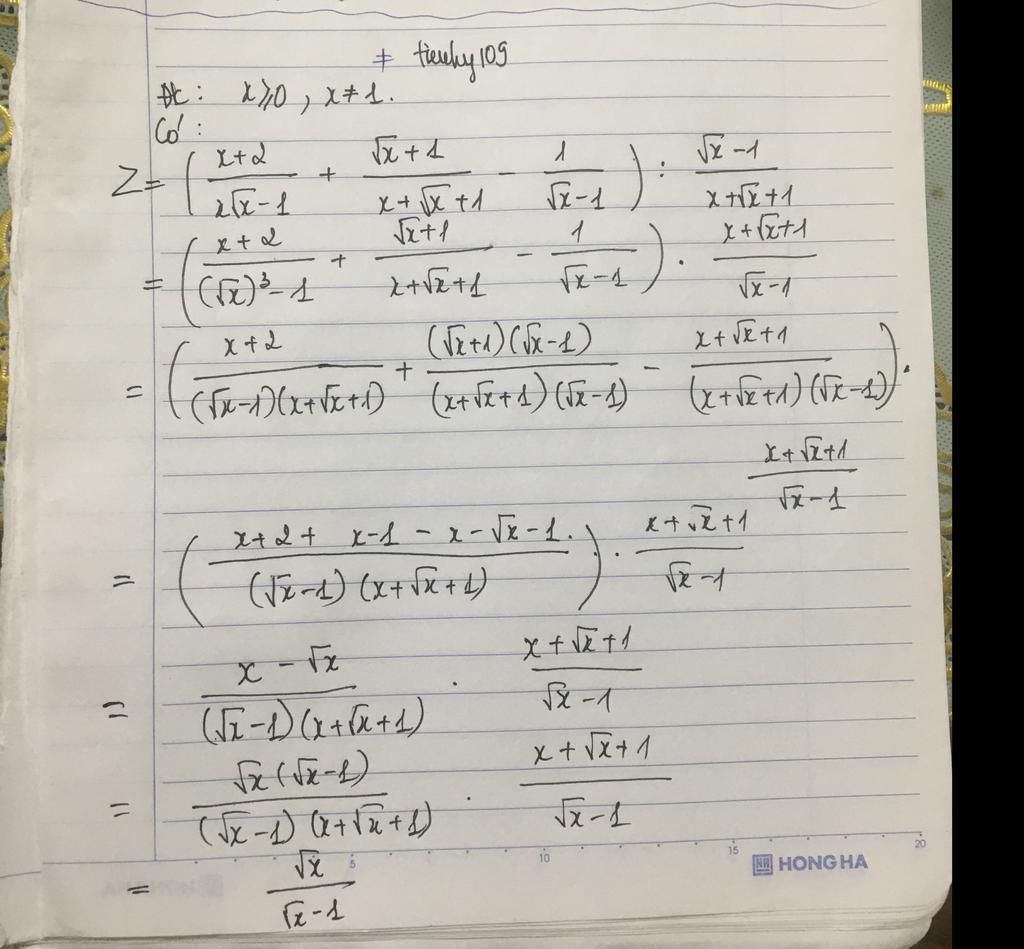 ≠ tieuhy109
Đk: x ≥ 0, x ≠ 1.
Có:
Z = ( (x+2)/(x√x - 1) + (√x + 1)/(x + √x + 1) - 1/(√x - 1) ) : (√x - 1)/(x + √x + 1)
= ( (x+2)/((√x)³ - 1) + (√x + 1)/(x + √x + 1) - 1/(√x - 1) ) . (x + √x + 1)/(√x - 1)
= ( (x+2)/((√x - 1)(x + √x + 1)) + ((√x + 1)(√x - 1))/((x + √x + 1)(√x - 1)) - (x + √x + 1)/((x + √x + 1)(√x - 1)) ) .
(x + √x + 1)/(√x - 1)
= ( (x + 2 + x - 1 - x - √x - 1.)/((√x - 1)(x + √x + 1)) ) . (x + √x + 1)/(√x - 1)
= (x - √x)/((√x - 1)(x + √x + 1)) . (x + √x + 1)/(√x - 1)
= (√x(√x - 1))/((√x - 1)(x + √x + 1)) . (x + √x + 1)/(√x - 1)
5 10 15 20
HONG HA
= √x/(√x - 1)